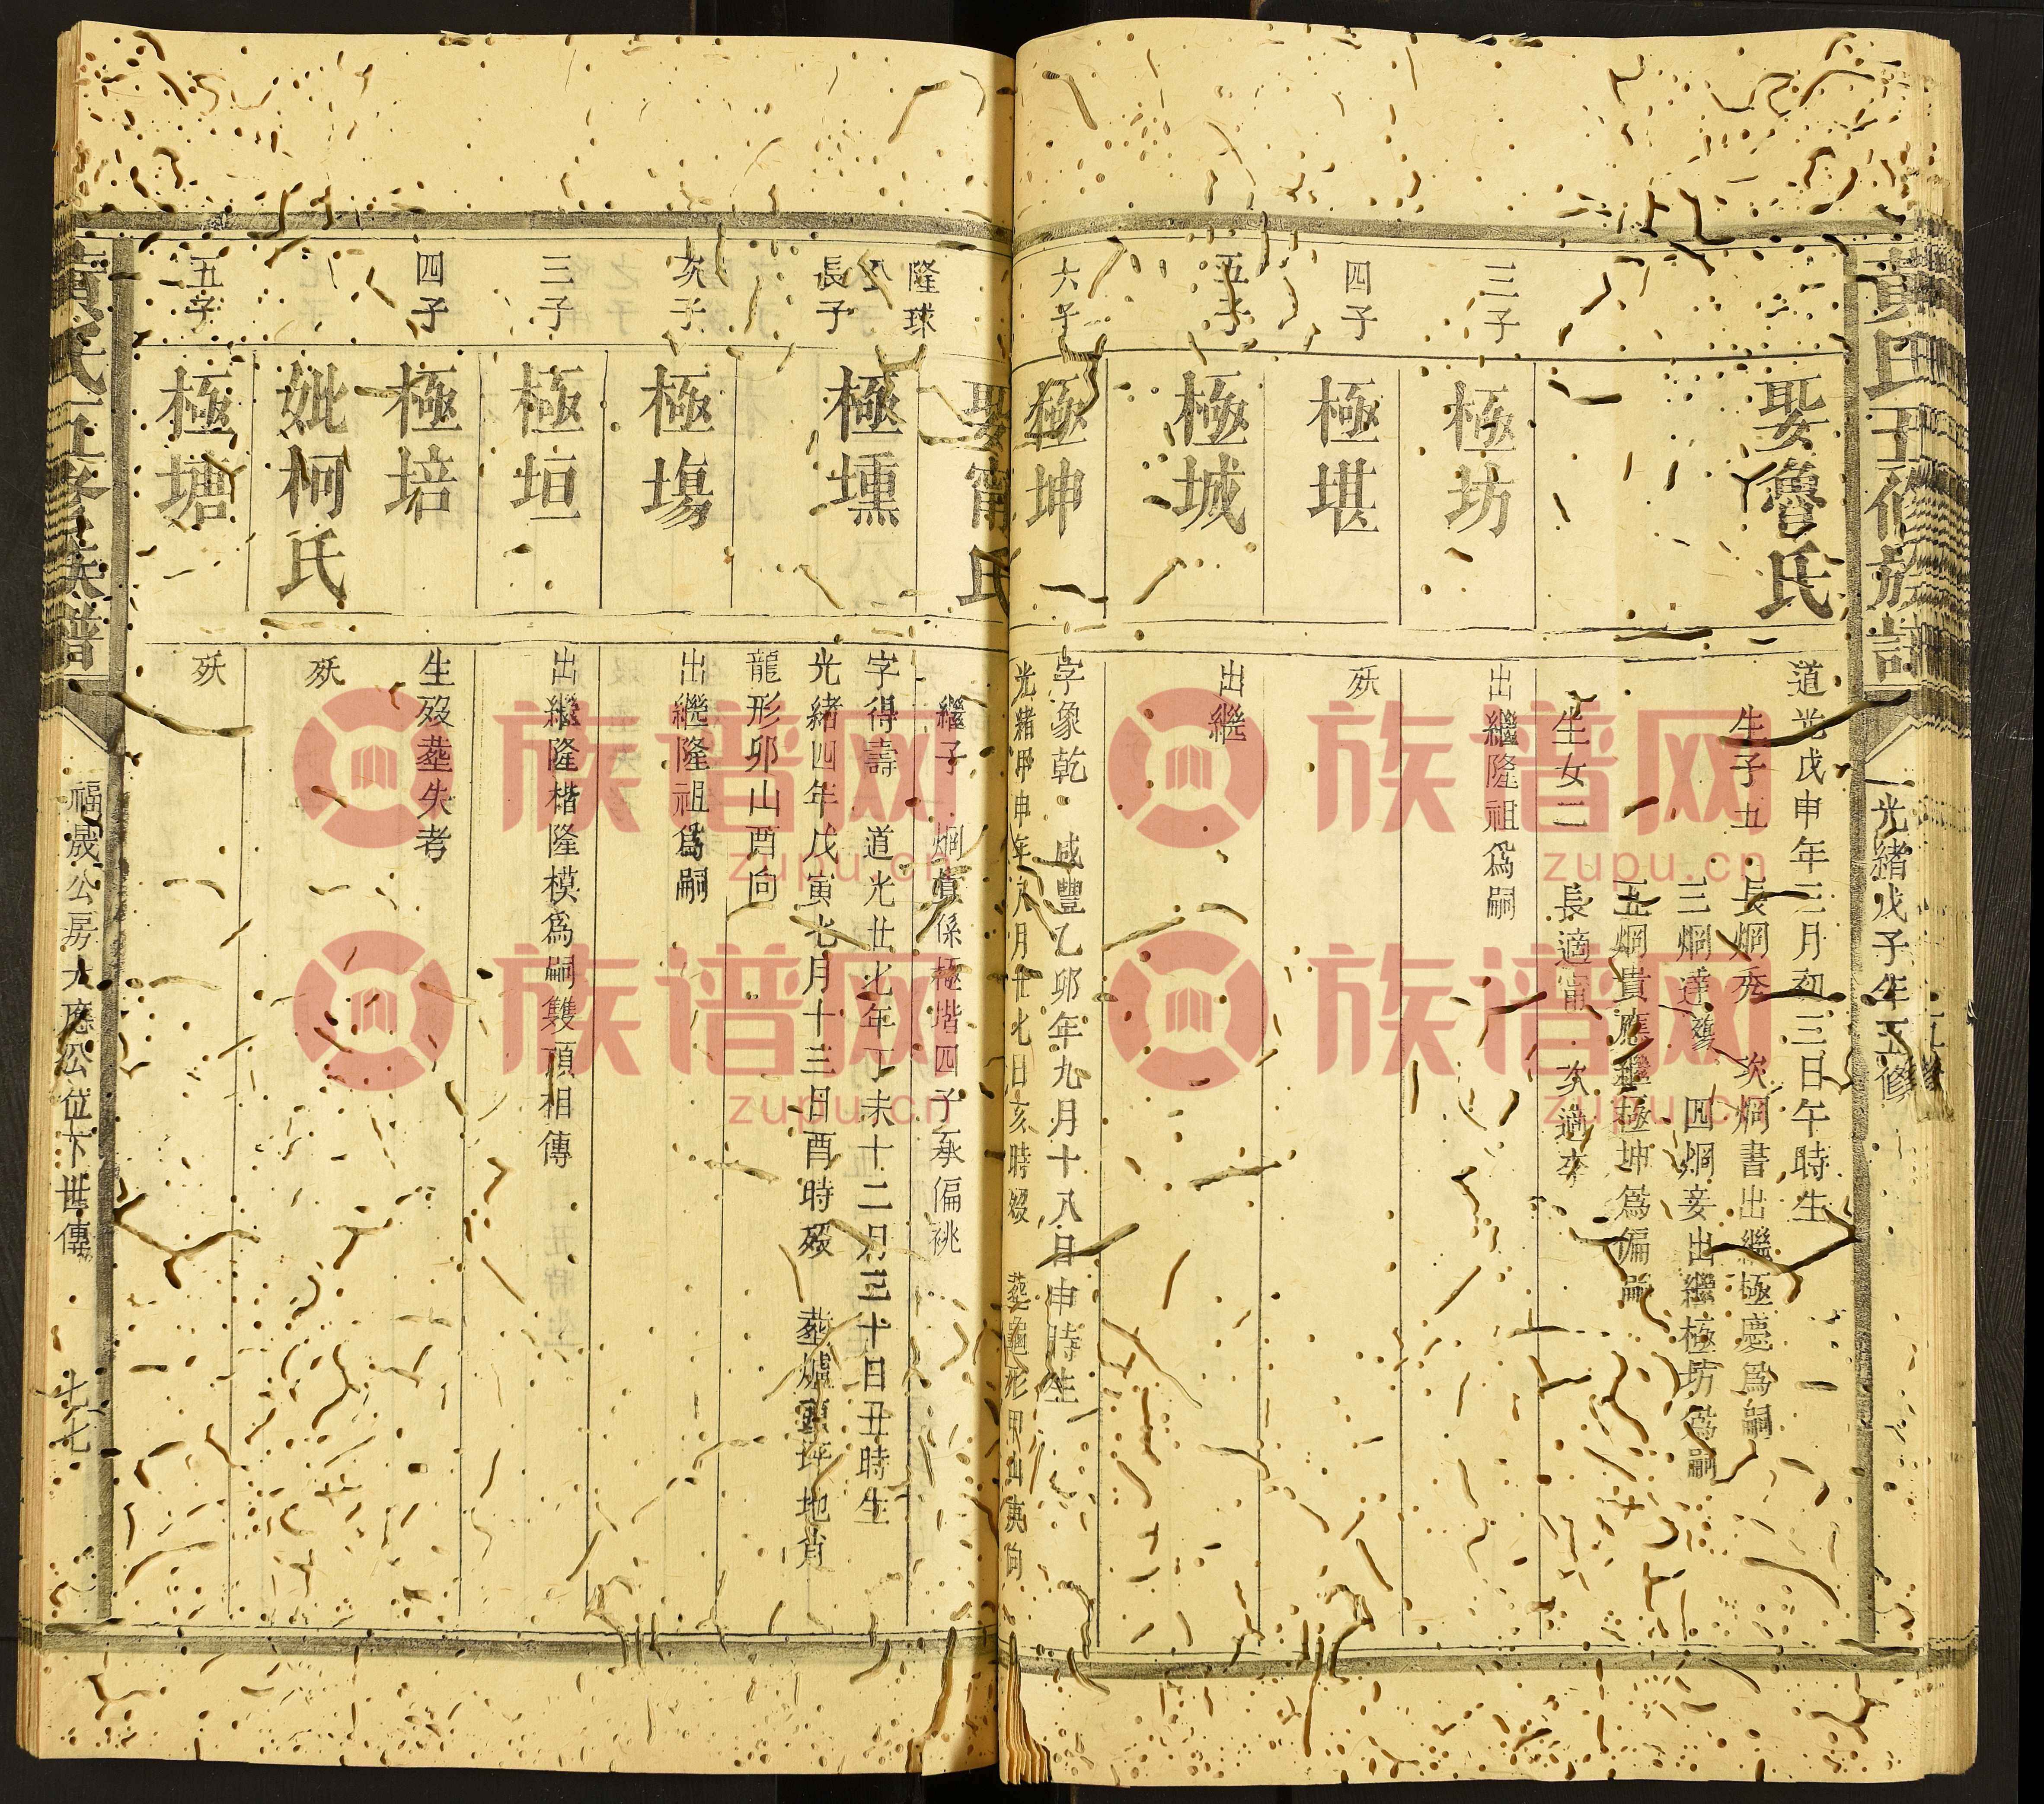 黃氏五修族譜
光緒戊子年五修
娶魯氏
道光戊申年三月初三日午時生
生子五 長烱秀 次烱書出繼極慶爲嗣
三烱達殤 四烱妾出繼極坊爲嗣
五烱貴應繼極坤爲偏嗣
生女二 長適甯 次適李
三子
極坊
出繼隆祖爲嗣
四子
極堪
殀
五子
極城
出繼
六子
極坤
字象乾 咸豐乙卯年九月十八日申時生
光緒甲申年八月廿七日亥時歿 葬龜形甲山庚向
娶甯氏
繼子 烱貴係極堦四子承偏祧
隆球
公
長子
極壎
字得壽 道光廿七年丁未十二月三十日丑時生
光緒四年戊寅七月十三日酉時歿 葬爐頭坪地肖
龍形卯山酉向
次子
極塲
出繼隆祖爲嗣
三子
極垣
出繼隆楷隆模爲嗣雙頂相傳
四子
極培
生歿塟失考
妣柯氏
殀
五子
極塘
殀
黃氏五修族譜
福晟公房大應公位下世傳
七七
族谱网
zupu.cn
族谱网
zupu.cn
族谱网
zupu.cn
族谱网
zupu.cn